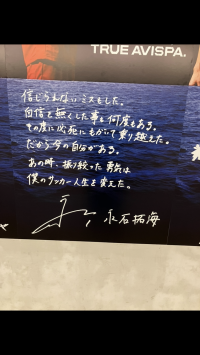 TRUE AVISPA.
信じられないミスもした。
自信を無くした事も何度もある。
その度に必死にもがいて乗り越えた。
だから今の自分がある。
あの時、振り絞った勇気は
僕のサッカー人生を変えた。
永石拓海